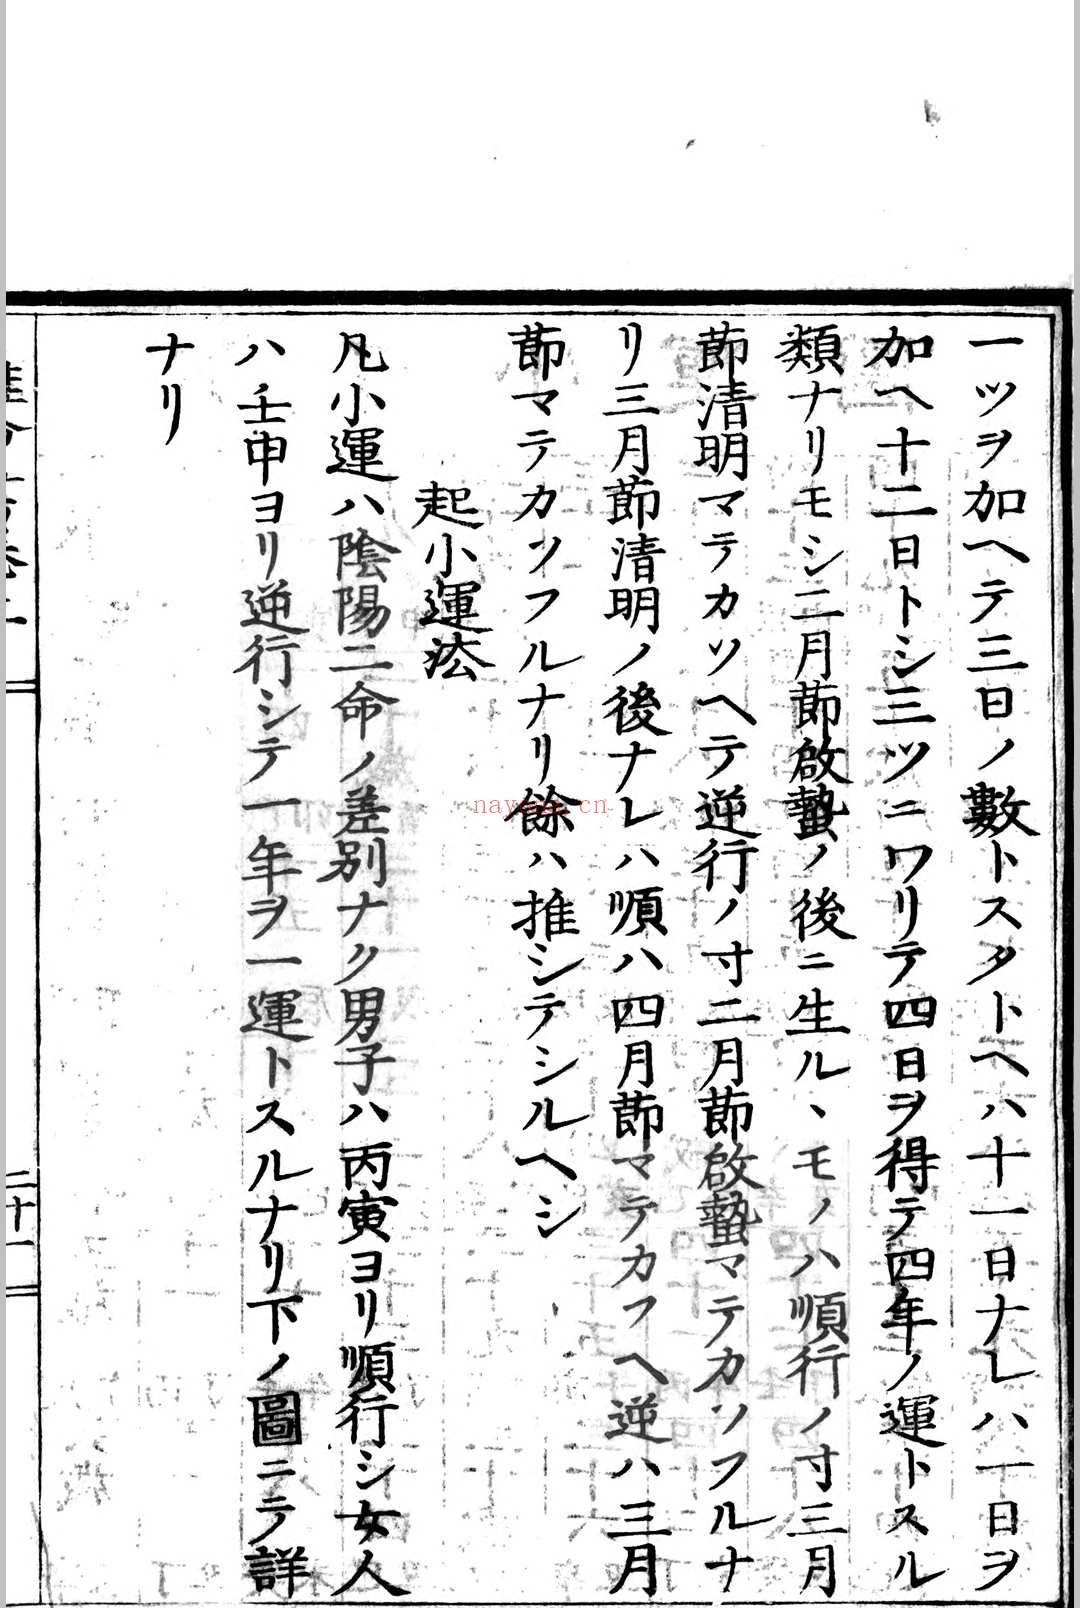 一ツヲ加ヘテ三日ノ數トスタトヘハ十一日ナレハ一日ヲ
加ヘ十二日トシ三ツニワリテ四日ヲ得テ四年ノ運トスル
類ナリモシ二月節啟蟄ノ後ニ生ル丶モノハ順行ノ寸三月
節清明マテカソヘテ逆行ノ寸二月節啟蟄マテカソフルナ
リ三月節清明ノ後ナレハ順ハ四月節マテカフヘ逆ハ三月
節マテカソフルナリ餘ハ推シテシルヘシ
起小運法
凡小運ハ陰陽二命ノ差別ナク男子ハ丙寅ヨリ順行シ女人
ハ壬申ヨリ逆行シテ一年ヲ一運トスルナリ下ノ圖ニテ詳
ナリ
二十一
nayona.cn